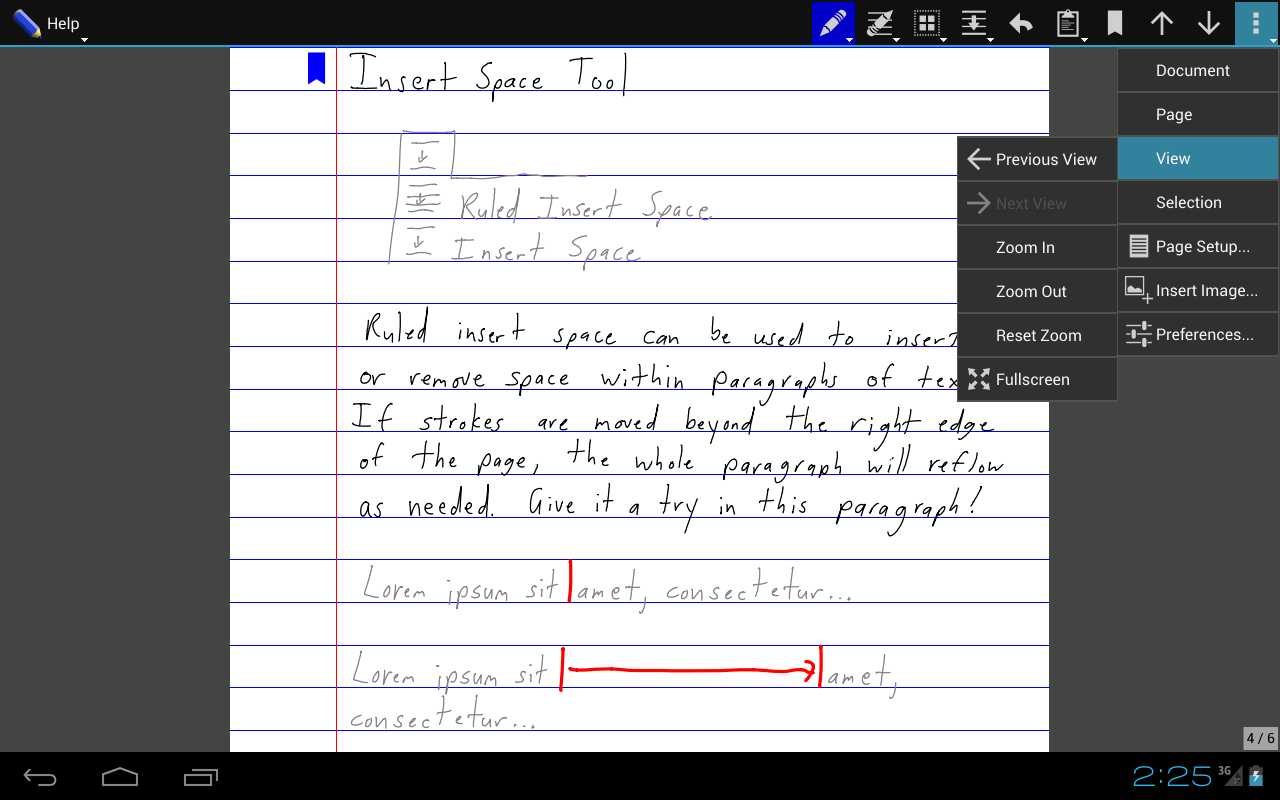 Help
Insert Space Tool
Ruled Insert Space
Insert Space
Ruled insert space can be used to insert
or remove space within paragraphs of
If strokes are moved beyond the right edge
of the page, the whole paragraph will reflow
as needed. Give it a try in this paragraph!
Lorem ipsum sit amet, consectetur...
Lorem ipsum sit amet,
consectetur...
Document
Page
View
Selection
Page Setup...
Insert Image...
Preferences...
Previous View
Next View
Zoom In
Zoom Out
Reset Zoom
Fullscreen
4 / 6
2:25
3G